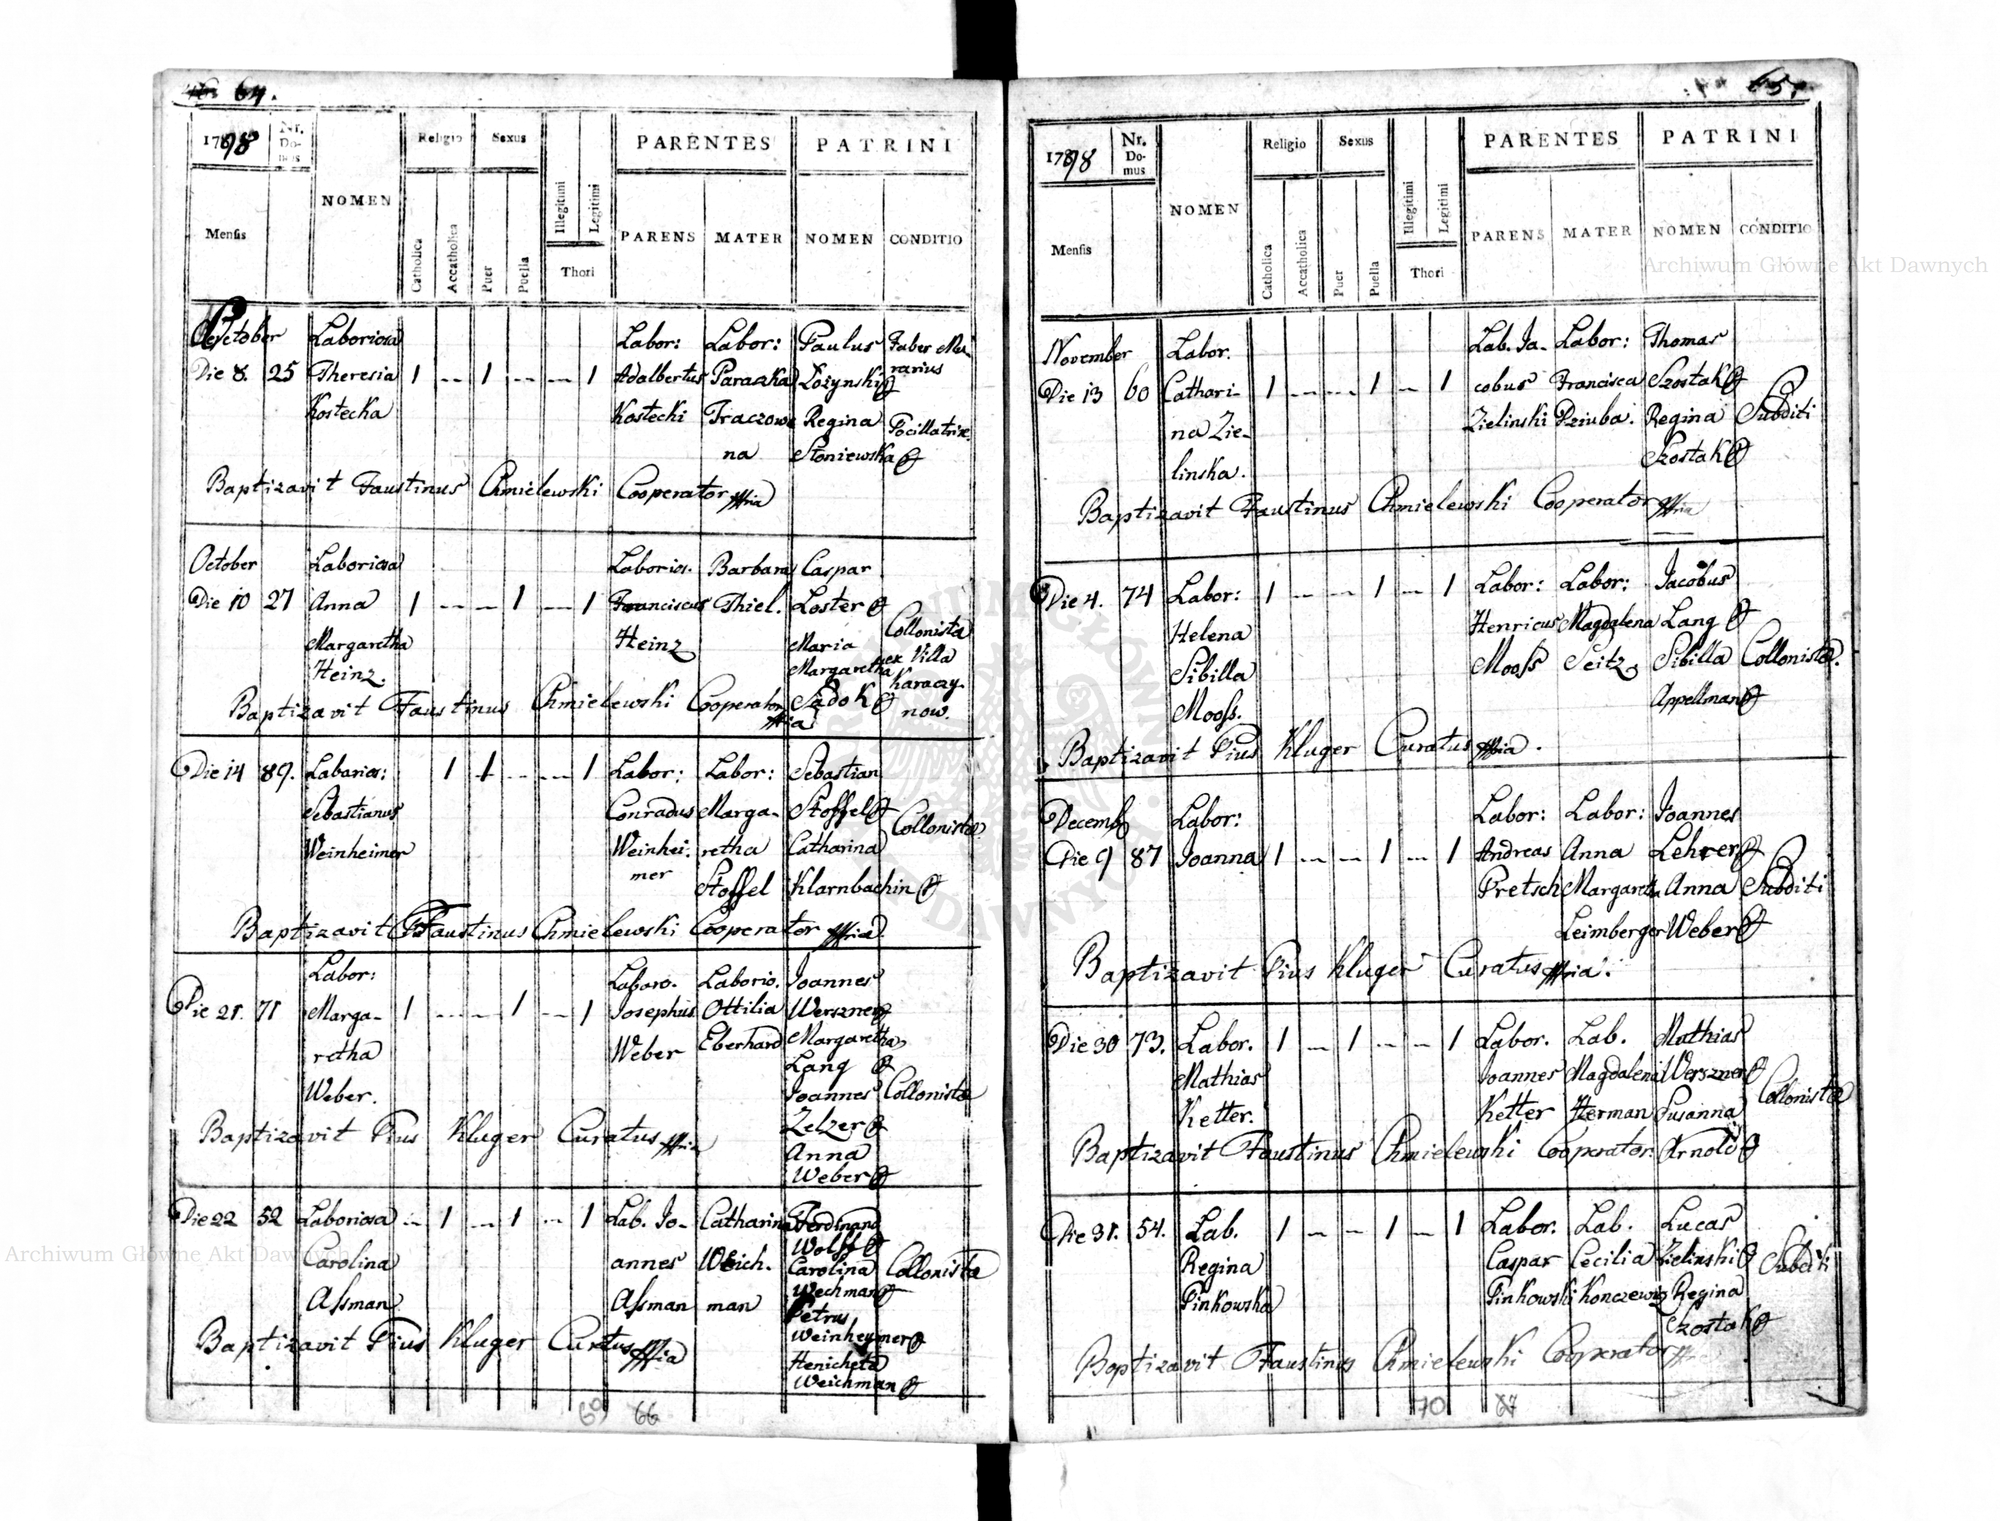 64.
1798
Nr. Domus
NOMEN
Religio
Sexus
PARENTES
PATRINI
Mensis
Catholica
Accatholica
Puer
Puella
Illegitimi
Legitimi
Thori
PARENS
MATER
NOMEN
CONDITIO
October Laboriosa Labor: Labor: Paulus Faber Mu-
Die 8. 25 Theresia 1 -- 1 -- -- 1 Adalbertus Paraszka Łożynski rarius
Kostecka Kostecki Traczowa Regina Focillatrix
na Stoniewska
Baptizavit Faustinus Chmielewski Cooperator mpria
October Laboriosa Laborios. Barbara Caspar
Die 10 27 Anna 1 -- -- 1 -- 1 Franciscus Thiel. Loster Collonista
Margaretha Heinz Maria ex Villa
Heinz. Margaretha Karaczy-
Baptizavit Faustinus Chmielewski Cooperator mpria Sadok now.
Die 14 89. Laborios: 1 1 -- -- 1 Labor: Labor: Sebastian
Sebastianus Conradus Marga- Stoffel Collonista
Weinheimer Weinhei- retha Catharina
mer Stoffel Klarnbachin
Baptizavit Faustinus Chmielewski Cooperator mpria
Labor: Laboro. Laborio. Joannes
Die 21. 71 Marga- 1 -- -- 1 -- 1 Josephus Ottilia Werszner
retha Weber Eberhard Margaretha
Lang
Weber. Joannes Collonista
Baptizavit Pius Kluger Curatus mpria Zelzer
Anna
Weber
Die 22 52 Laboriosa -- 1 -- 1 -- 1 Lab. Jo- Catharina Ferdinand
Wolff
Carolina annes Weich- Carolina Collonista
Assman Assman man Wechman
Petrus
Baptizavit Pius Kluger Curatus mpria Weinheymer
Henicheta
Weichman
69 66
65
1798
Nr. Domus
NOMEN
Religio
Sexus
PARENTES
PATRINI
Mensis
Catholica
Accatholica
Puer
Puella
Illegitimi
Legitimi
Thori
PARENS
MATER
NOMEN
CONDITIO
November Labor. Lab. Ja- Labor: Thomas
Die 13 60 Cathari- 1 -- -- 1 -- 1 cobus Francisca Szostak
na Zie- Zielinski Dziuba. Regina Subditi
linska. Szostak
Baptizavit Faustinus Chmielewski Cooperator mpria
Die 4. 74 Labor: 1 -- -- 1 -- 1 Labor: Labor: Jacobus
Helena Henricus Magdalena Lang
Sibilla Mooss Seitz Sibilla Collonista.
Mooss. Appelman
Baptizavit Pius Kluger Curatus mpria.
Decemb Labor: Labor: Labor: Joannes
Die 9 87 Joanna 1 -- -- 1 -- 1 Andreas Anna Lehrer
Pretsch Margareta Anna Subditi
Leimberger Weber
Baptizavit Pius Kluger Curatus mpria.
Die 30 73. Labor. 1 -- 1 -- -- 1 Labor. Lab. Mathias
Mathias Joannes Magdalena Werszner Collonista
Ketter. Ketter Herman Susanna
Baptizavit Faustinus Chmielewski Cooperator. Arnold
Die 31. 54. Lab. 1 -- -- 1 -- 1 Labor. Lab. Lucas
Regina Caspar Cecilia Zielinski Subditi
Pinkowska Pinkowski Konczewiz Regina
Szostak
Baptizavit Faustinus Chmielewski Cooperator
70 67
Archiwum Główne Akt Dawnych
Archiwum Główne Akt Dawnych